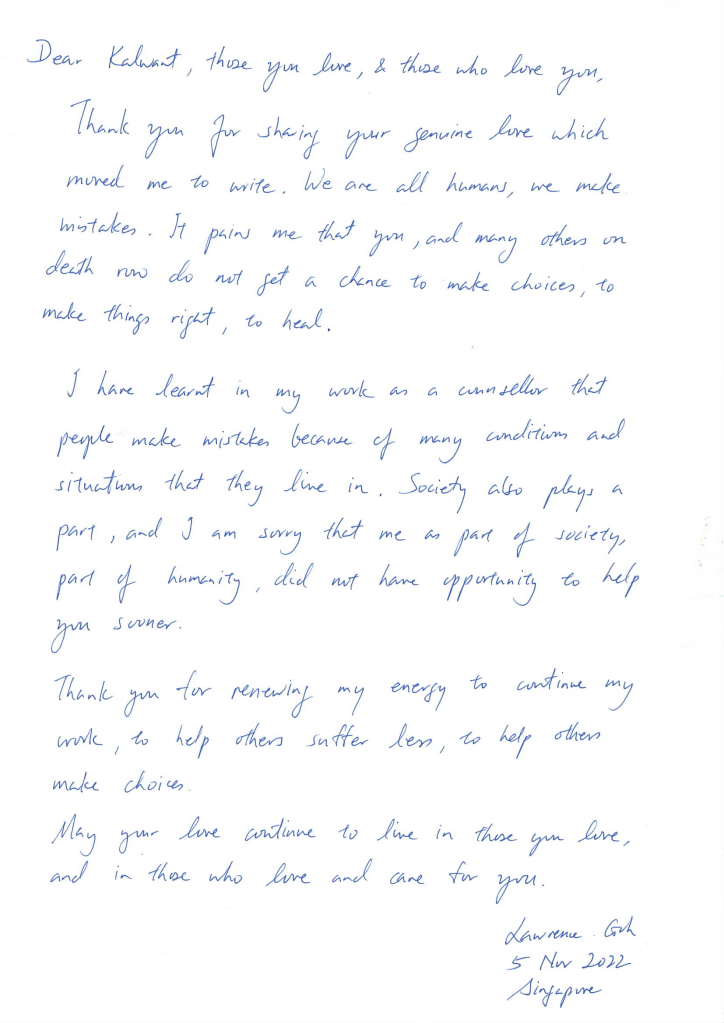 Dear Kalwant, those you love, & those who love you,
Thank you for sharing your genuine love which
moved me to write. We are all humans, we make
mistakes. It pains me that you, and many others on
death row do not get a chance to make choices, to
make things right, to heal.
I have learnt in my work as a counsellor that
people make mistakes because of many conditions and
situations that they live in. Society also plays a
part, and I am sorry that me as part of society,
part of humanity, did not have opportunity to help
you sooner.
Thank you for renewing my energy to continue my
work, to help others suffer less, to help others
make choices.
May your love continue to live in those you love,
and in those who love and care for you.
Lawrence Goh
5 Nov 2022
Singapore